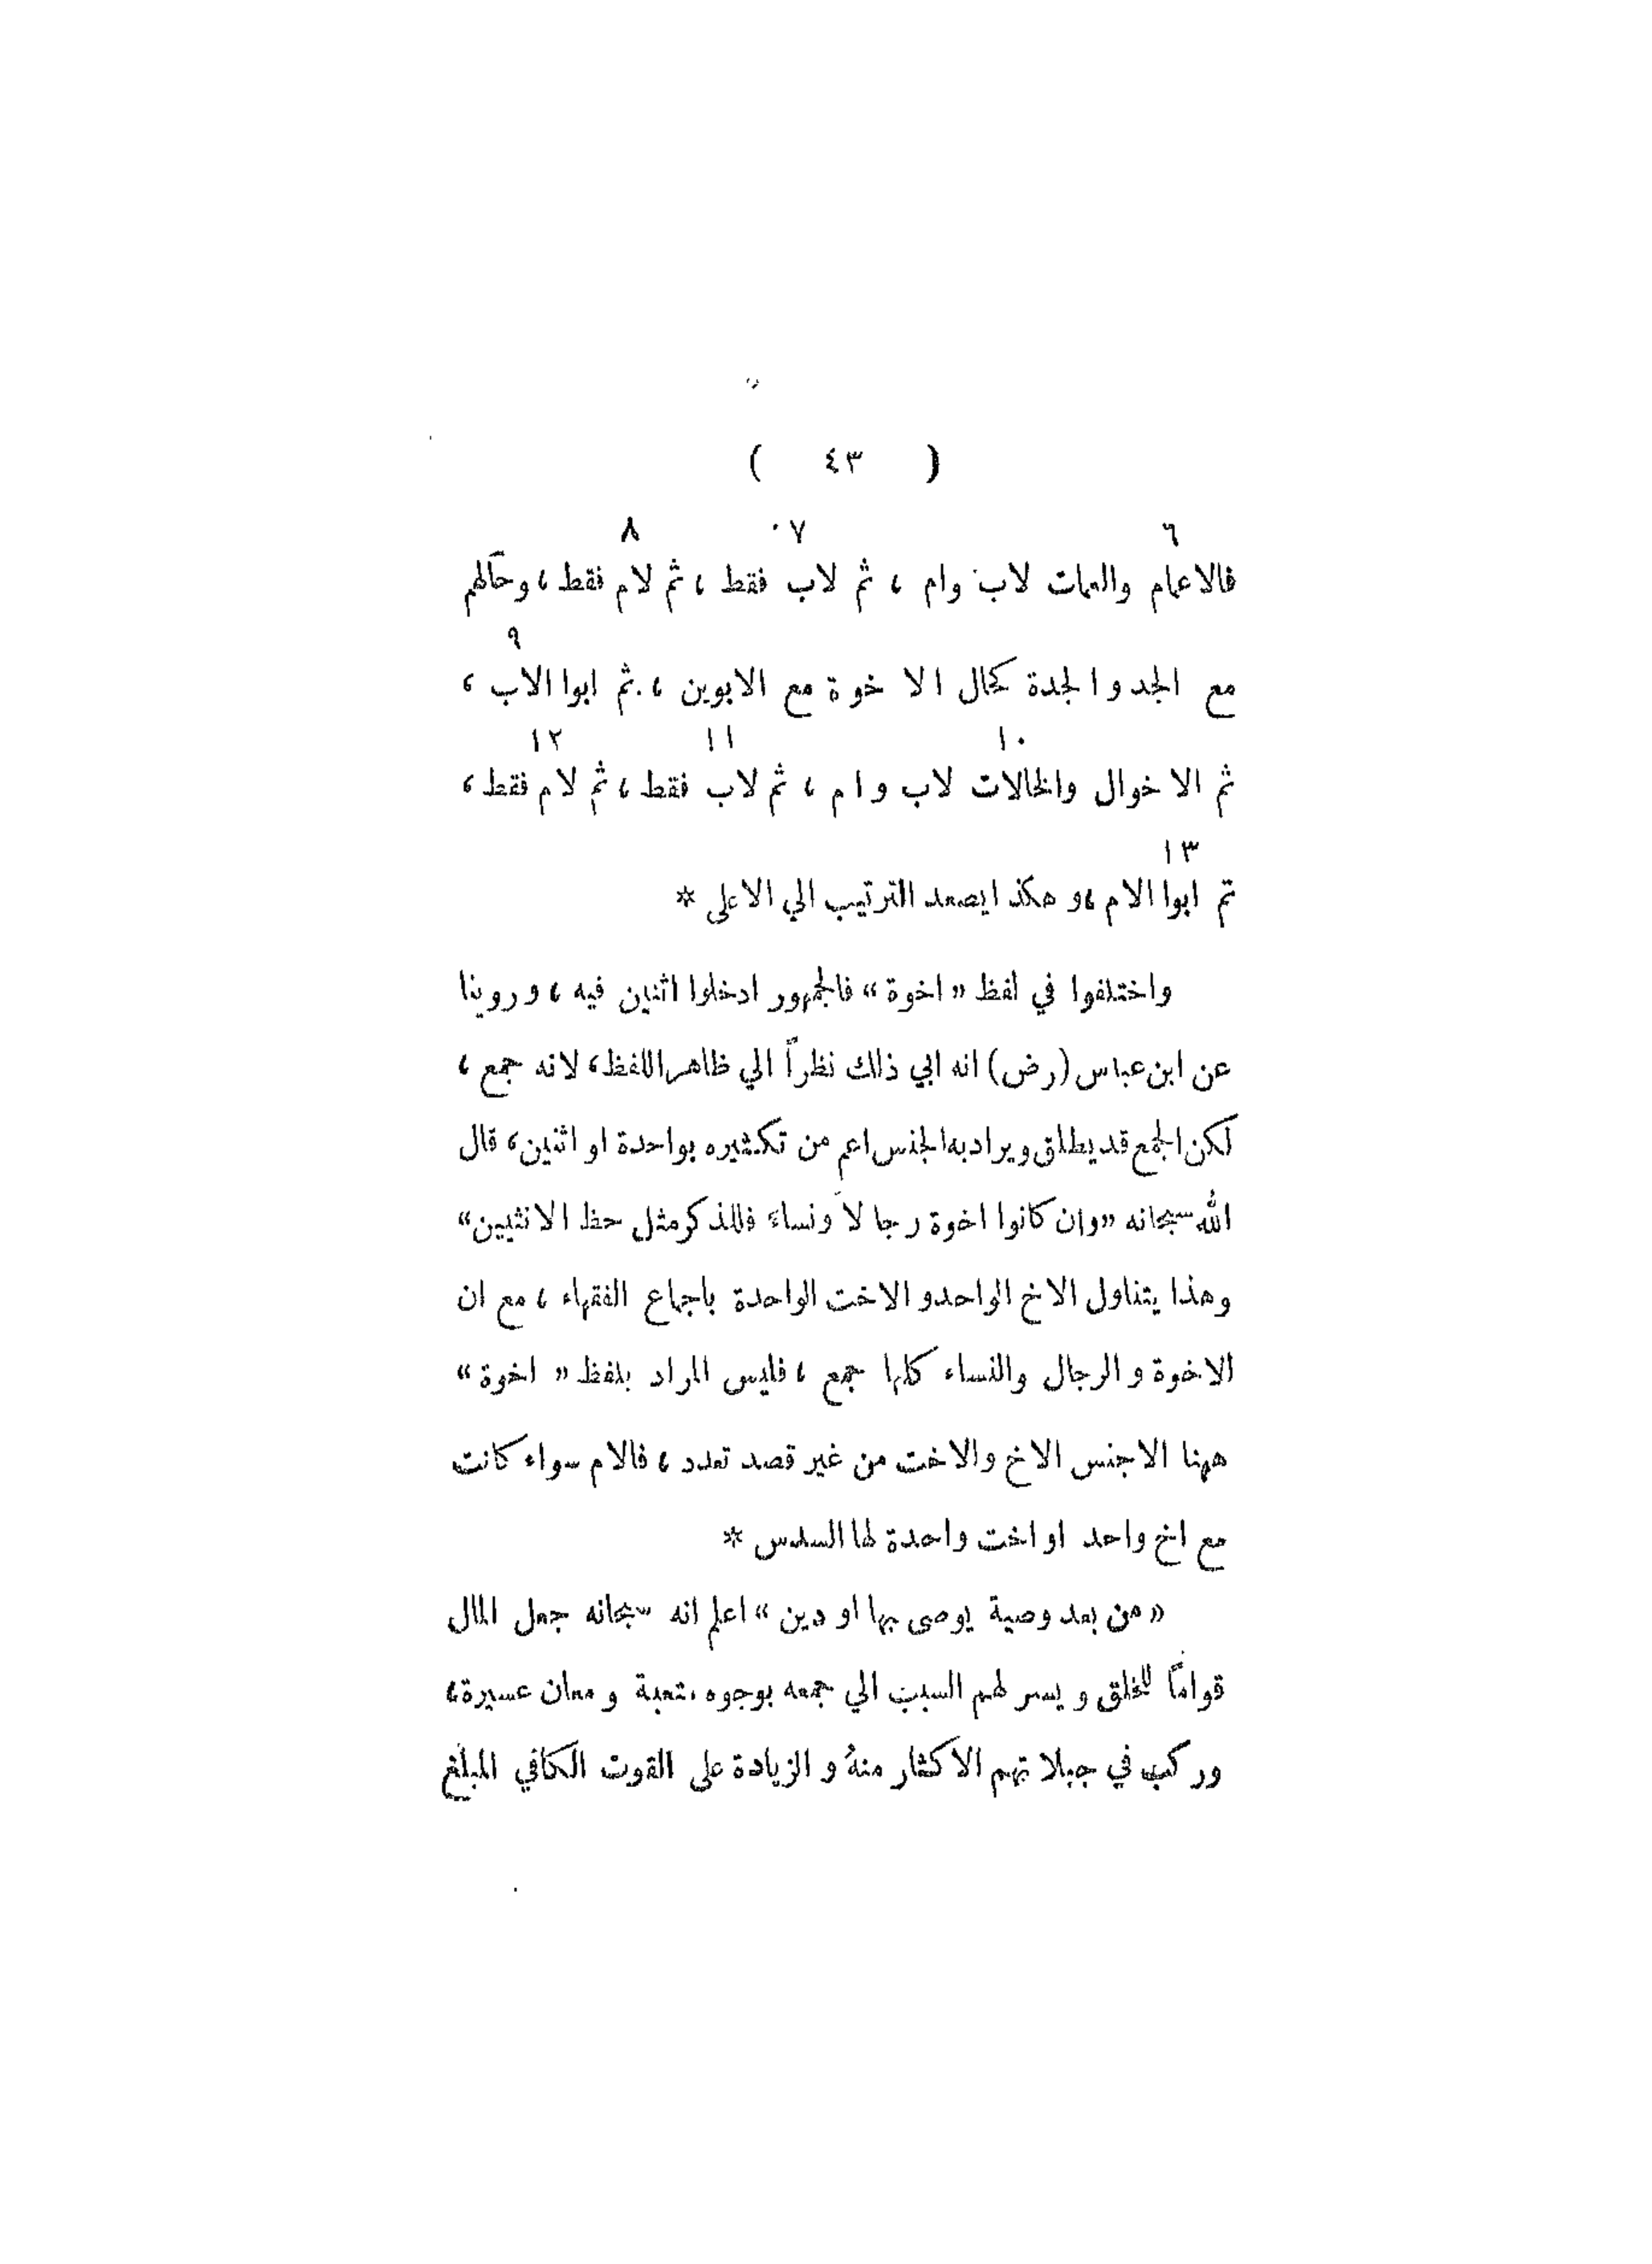 ( ٤٣ )
٦ ٧ ٨
فالاعمام والعمات لاب وام ، ثم لاب فقط ، ثم لام فقط ، وحالهم
٩
مع الجد والجدة كحال الاخوة مع الابوين ، ثم ابوا الاب ،
١٠ ١١ ١٢
ثم الاخوال والخالات لاب وام ، ثم لاب فقط ، ثم لام فقط ،
١٣
تم ابوا الام ، و هكذا يصعد الترتيب الي الاعلى *
واختلفوا في لفظ « اخوة » فالجمهور ادخلوا اثنين فيه ، و روينا
عن ابن عباس (رض) انه ابي ذلك نظراً الي ظاهر اللفظ ، لانه جمع ،
لكن الجمع قد يطلق و يراد به الجنس اعم من تكثيره بواحدة او اثنين ، قال
الله سبحانه « وان كانوا اخوة رجالا ونساء فللذكر مثل حظ الانثيين »
وهذا يتناول الاخ الواحد و الاخت الواحدة باجماع الفقهاء ، مع ان
الاخوة و الرجال والنساء كلها جمع ، فليس المراد بلفظ « اخوة »
ههنا الاجنس الاخ والاخت من غير قصد تعدد ، فالام سواء كانت
مع اخ واحد او اخت واحدة لها السدس *
« من بعد وصية يوصى بها او دين » اعلم انه سبحانه جعل المال
قواماً للخلق و يسر لهم السبب الي جمعه بوجوه متعبة و معان عسيرة ،
وركب في جبلاتهم الاكثار منهُ و الزيادة على القوت الكافي المبلغ